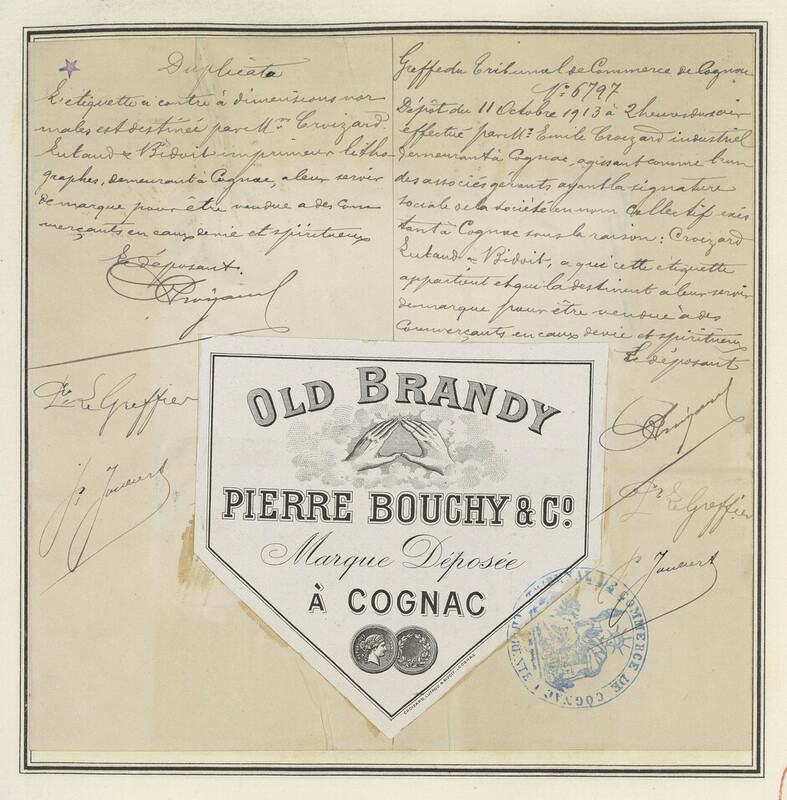 Duplicata
L'étiquette ci contre à dimensions nor
males est destinée par Mm Croizard
Lutaud & Bidoit imprimeurs litho
graphes, demeurant à Cognac, a leur servir
de marque pour être vendue a des com
merçants en eaux de vie et spiritueux
Le déposant.
Croizard
Pr Le Greffier
Greffe du Tribunal de Commerce de Cognac
No 6797
Dépôt du 11 Octobre 1913 à 2 heures du soir
effectué par Mr Emile Croizard industriel
demeurant à Cognac, agissant comme l'un
des associés gérants ayant la signature
sociale de la société en nom Collectif exis
tant à Cognac sous la raison: Croizard
Lutaud & Bidoit, a qui cette étiquette
appartient et qui la destinent a leur servir
de marque pour être vendue à des
Commerçants en eaux de vie et spiritueux
Le déposant
Croizard
Pr Le Greffier
OLD BRANDY
PIERRE BOUCHY & Co.
Marque Déposée
À COGNAC
CROIZARD, LUTAUD & BIDOIT, COGNAC
TRIBUNAL DE COMMERCE DE COGNAC